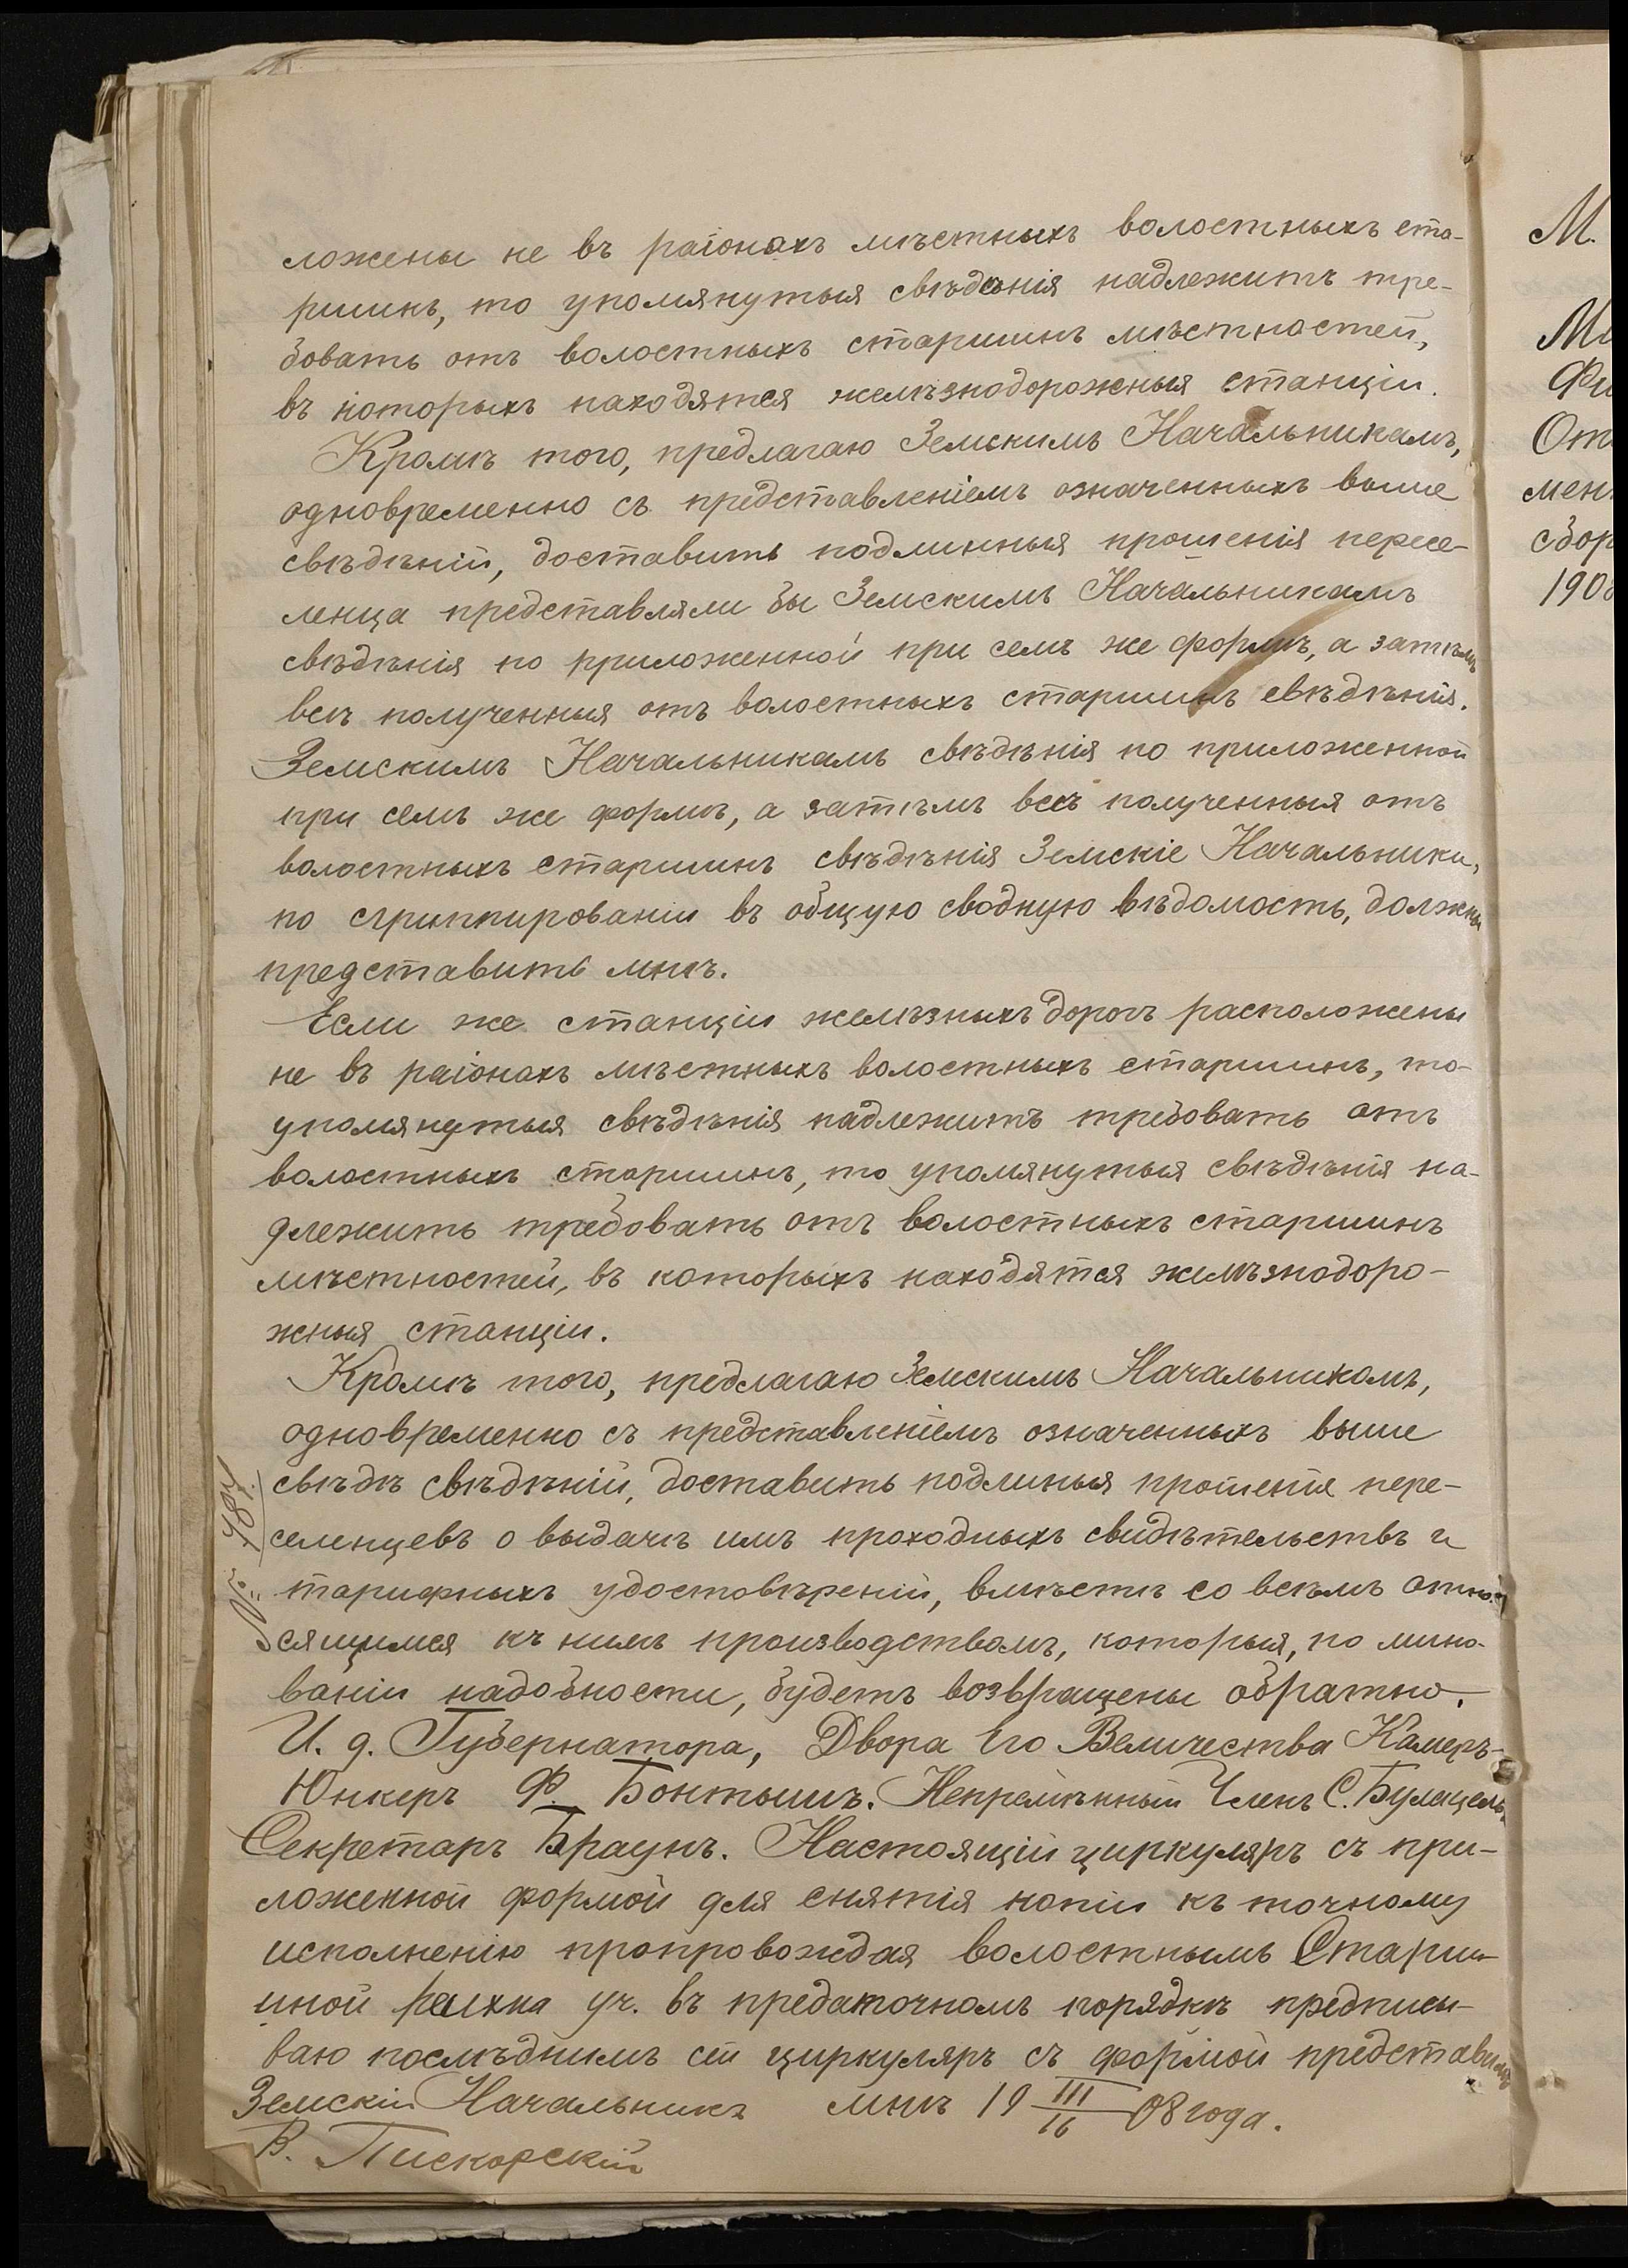 ложены не въ раіонахъ мѣстныхъ волостныхъ ста-
ршинъ, то упомянутыя свѣдѣнія надлежитъ тре-
бовать отъ волостныхъ старшинъ мѣстностей,
въ которыхъ находятся желѣзнодорожныя станціи.
Кромѣ того, предлагаю Земскимъ Начальникамъ,
одновременно съ представленіемъ означенныхъ выше
свѣдѣній, доставить подлинныя прошенія пересе-
ленца представляли бы Земскимъ Начальникамъ
свѣдѣнія по приложенной при семъ же формѣ, а затѣмъ
всѣ полученныя отъ волостныхъ старшинъ свѣдѣнія.
Земскимъ Начальникамъ свѣдѣнія по приложенной
при семъ же формѣ, а затѣмъ всѣ полученныя отъ
волостныхъ старшинъ свѣдѣнія Земскіе Начальники,
по сгриппированіи въ общую сводную вѣдомость, должны
представить мнѣ.
Если же станціи желѣзныхъ дорогъ расположены
не въ раіонахъ мѣстныхъ волостныхъ старшинъ, то-
упомянутыя свѣдѣнія надлежитъ требовать отъ
волостныхъ старшинъ, то упомянутыя свѣдѣнія на-
длежить требовать отъ волостныхъ старшинъ
мѣстностей, въ которыхъ находятся желѣзнодоро-
жныя станціи.
Кромѣ того, предлагаю Земскимъ Начальникомъ,
одновременно съ представленіемъ означенныхъ выше
свѣдѣ свѣдѣній, доставить подлиныя прошенія пере-
селенцевъ о выдачѣ имъ проходныхъ свидѣтельствъ и
тарифныхъ удостовѣреній, вмѣстѣ со всѣмъ отно-
сящимся къ нимъ производствомъ, которыя, по мино-
ваніи надобности, будетъ возвращены обратно.
И. д. Губернатора, Двора Его Величества Камеръ-
Юнкеръ Ф. Бонтышъ. Непремѣнный Членъ С. Булацель.
Секретарь Браунъ. Настоящій циркуляръ съ при-
ложенной формой для снятія копіи къ точному
исполненію препровождая волостнымъ Старши-
ной уч. въ предаточномъ порядкѣ предписы-
ваю послѣднимъ сей циркуляръ съ формой представить
Земскій Начальникъ мнѣ 19 III/16 08 года.
В. Пискорскій
№ 787.
М.
Фи
От
мен
сбор
190